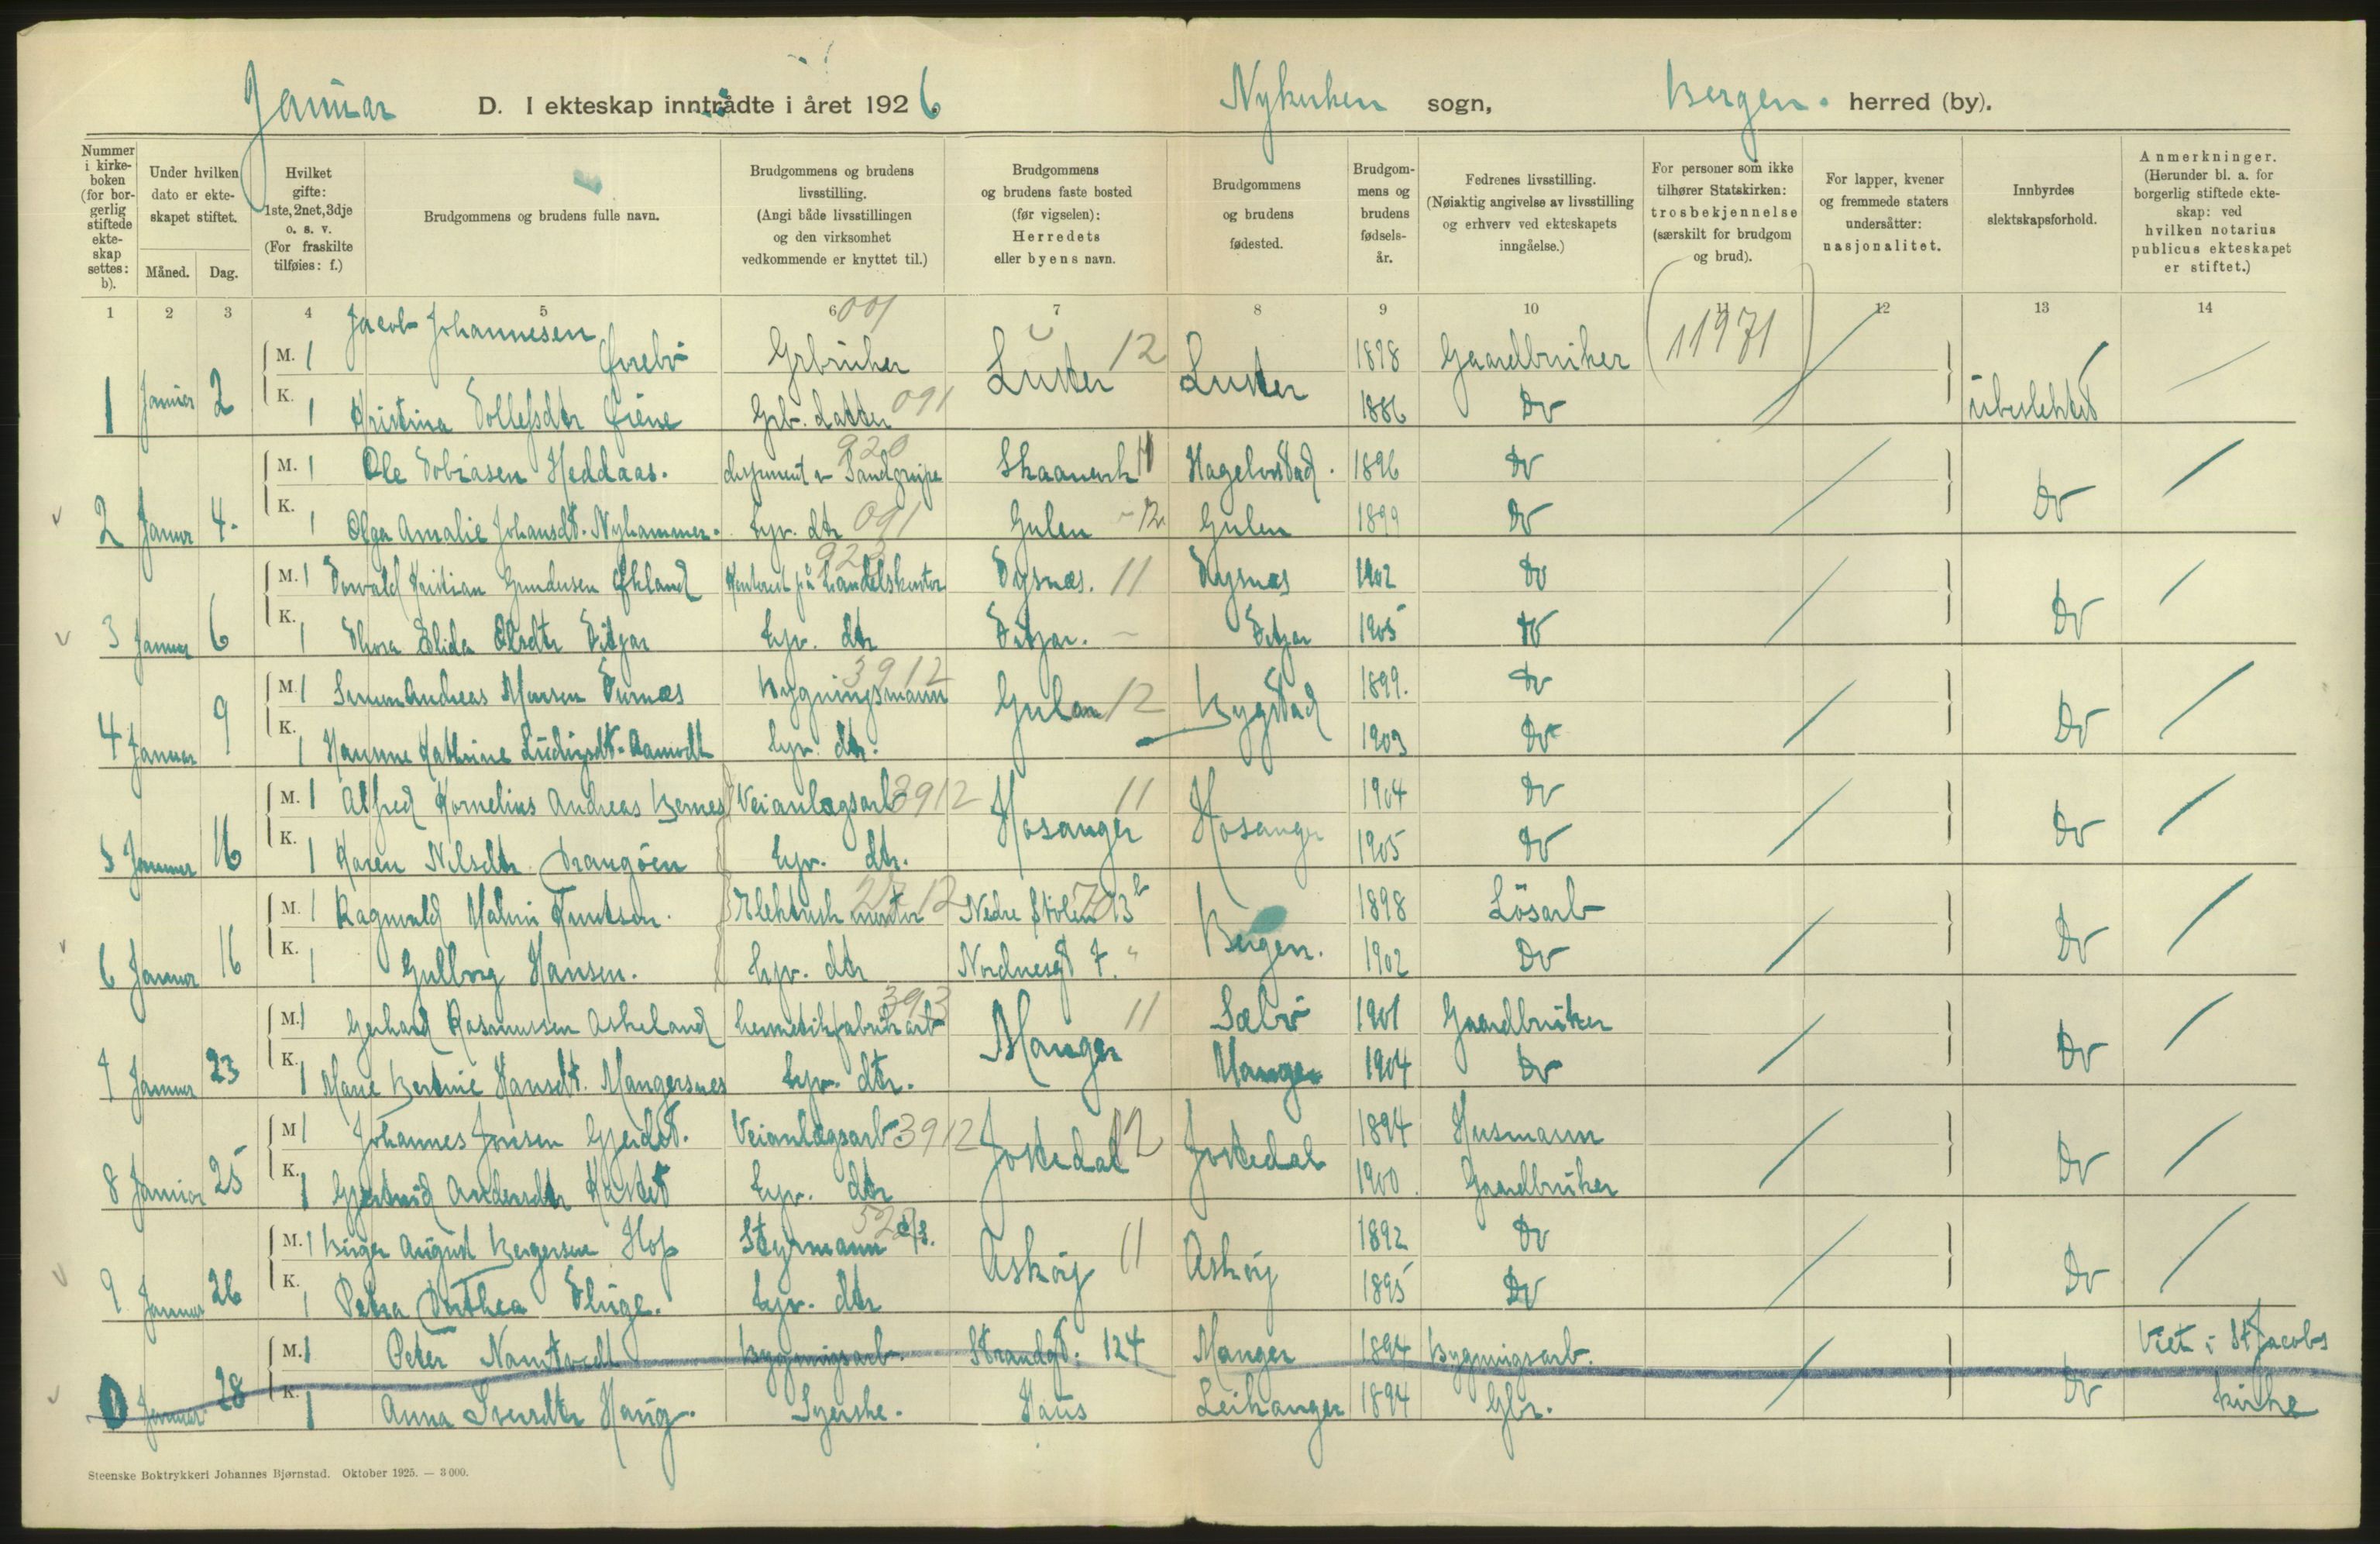 Januar D. I ekteskap inntrådte i året 1926 Nykirken sogn, Bergen. herred (by).
Nummer i kirkeboken (for borgerlig stiftede ekteskap settes: b).
Under hvilken dato er ekteskapet stiftet.
Måned. Dag.
Hvilket gifte: 1ste, 2net, 3dje o. s. v. (For fraskilte tilføies: f.)
Brudgommens og brudens fulle navn.
Brudgommens og brudens livsstilling. (Angi både livsstillingen og den virksomhet vedkommende er knyttet til.)
Brudgommens og brudens faste bosted (før vigselen): Herredets eller byens navn.
Brudgommens og brudens fødested.
Brudgommens og brudens fødselsår.
Fedrenes livsstilling. (Nøiaktig angivelse av livsstilling og erhverv ved ekteskapets inngåelse.)
For personer som ikke tilhører Statskirken: trosbekjennelse (særskilt for brudgom og brud).
For lapper, kvener og fremmede staters undersåtter: nasjonalitet.
Innbyrdes slektskapsforhold.
Anmerkninger. (Herunder bl. a. for borgerlig stiftede ekteskap: ved hvilken notarius publicus ekteskapet er stiftet.)
1 2 3 4 5 6 7 8 9 10 11 12 13 14
001 (11971)
M. 1 Jacob Johannesen Grbruker Luster 12 Luster 1878 Gaardbruker
1 Januar 2 K. 1 Kristina Grb. datter 091 1886 Do ubeslektet
M. 1 Ole Tobiasen Heddaas. 920 Skaanevik 11 Hægebostad. 1896 Do
2 Januar 4. K. 1 Olga Amalie Johansdt. Nyhammer. hjv. dtr 091 Gulen 12 Gulen 1899 Do Do
M. 1 Torvald Kristian Kontorist på handelskontor Tysnæs. 11 Tysnæs 1902 Do
3 Januar 6 K. 1 Thora Elida Olsdtr Fitjar hjv. dtr Fitjar. Fitjar 1905 Do Do
M. 1 Simon Andreas Monsen bygningsmann 3912 Gulen 12 Bygstad 1899. Do
4 Januar 9 K. 1 Hanna Kathrine Ludvigsdt. hjv. dtr. 1903 Do Do
M. 1 Alfred Kornelius Andreas Bernes Veianlægsarb 3912 Hosanger 11 Hosanger 1904 Do
5 Januar 16 K. 1 Karen Nilsdtr. hjv. dtr. 1905 Do Do
M. 1 Ragnvald Malvin Knutsen. Elektrisk montør Nedre Stølen 13 b Bergen. 1898 Løsarb
6 Januar 16 K. 1 Gulborg Hansen. hjv. dtr Nordnesgt 7. " 1902 Do Do
M. 1 Gerhard Rasmussen Askeland hermetikfabrikarb 393 Manger 11 Sæbø 1901 Gaardbruker
7 Januar 23 K. 1 Marie Bertine Hansdt. Mangersnes hjv. dtr. Manger 1904 Do Do
M. 1 Johannes Jonsen Gjerdet. Veianlægsarb 3912 Jostedal 12 Jostedal 1894 Husmann
8 Januar 25 K. 1 Gjertrud Andersdtr hjv. dtr 1900. Gaardbruker Do
M. 1 Birger August Bergersen Hop Styrmann Askøy 11 Askøy 1892 Do
9 Januar 26 K. 1 Petra Dorthea hjv. dtr 1895 Do Do
M. 1 Peter Namtvedt Bygningsarb. Strandgt. 124 Manger 1894 Bygningsarb. Viet i St Jacobs
Januar 28 K. 1 Anna Iversdtr Haug. Syerske. Haus Leikanger 1894 Gbr. Do kirke
Steenske Boktrykkeri Johannes Bjørnstad. Oktober 1925. — 3000.